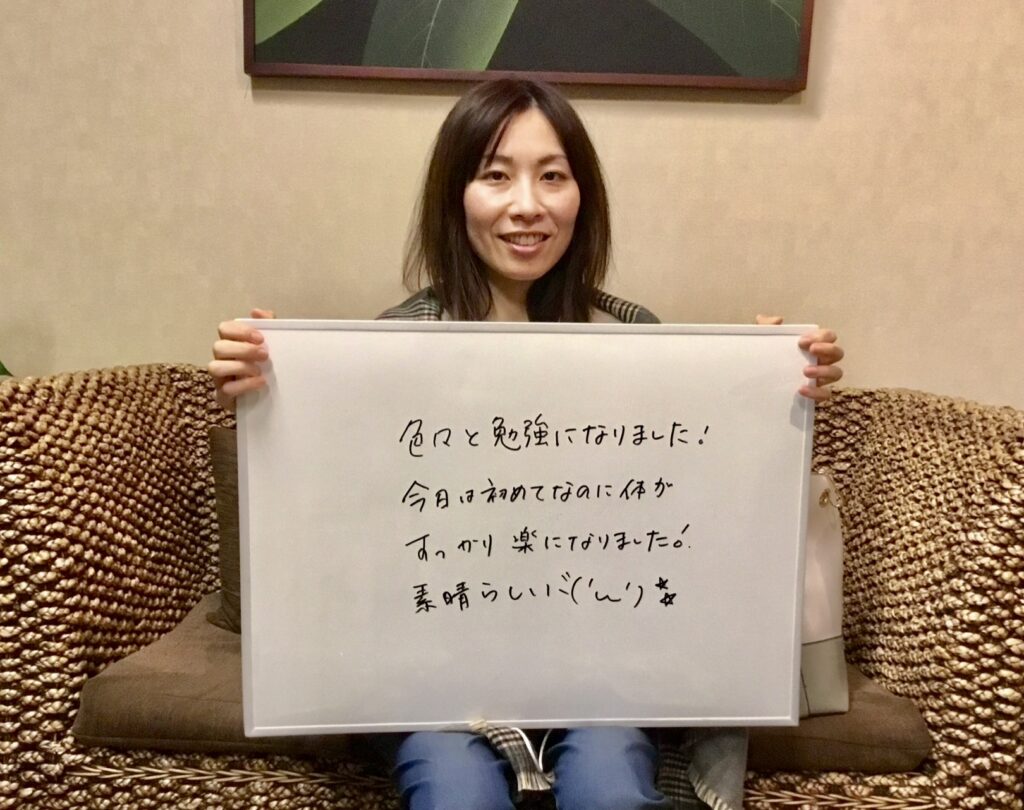 色々と勉強になりました!
今日は初めてなのに体が
すっかり楽になりました!
素晴らしい!('ω')☆☆